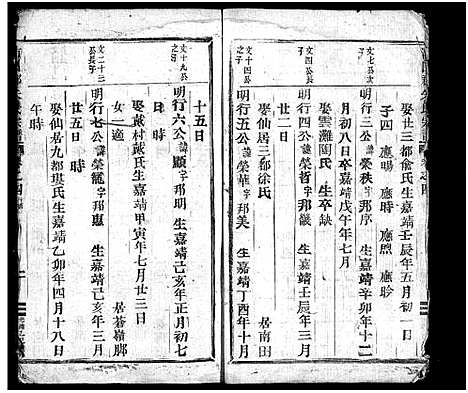 娶廿三都俞氏生嘉靖壬辰年五月一日
子四 應暘 應時 應煦 應聆
文七公次子
明行三公諱榮秩字邦序 生嘉靖辛卯年十二
月初八日卒嘉靖戊午年七月
娶雲灘閻氏 生卒缺
文四公長子
明行四公諱榮 字邦巖 生嘉靖壬辰年三月
廿二日
娶仙居三都徐氏 居南田
文十四公之子
明行五公諱榮華字邦美 生嘉靖丁酉年十月
十五日
文十九公之子
明行六公諱顯 字邦明 生嘉靖己亥年正月初七
日時
娶戴村戴氏生嘉靖甲寅年七月廿三日
女一適 居苍嶺腳
文二十三公長子
明行七公諱榮寵字邦惠 生嘉靖己亥年三月
廿五日時
娶仙居九都琪氏生嘉靖乙卯年四月十八日
午時